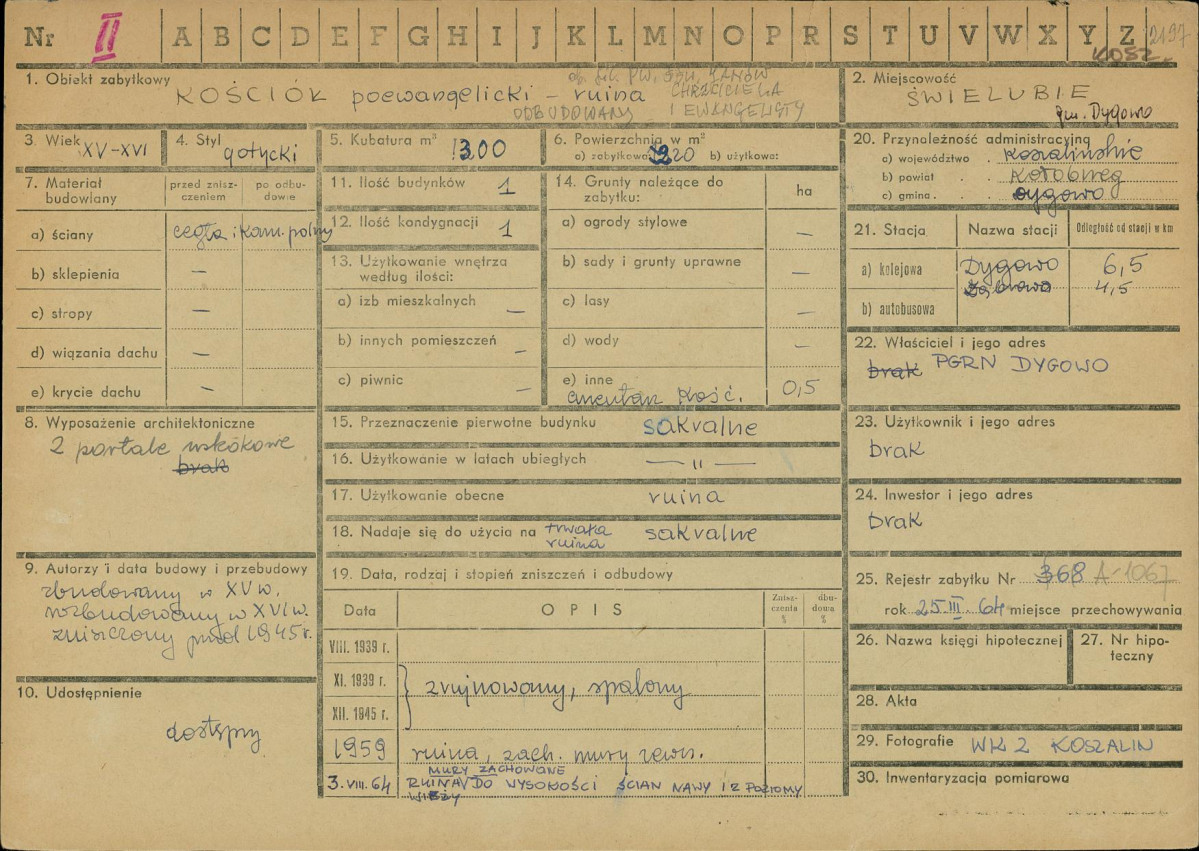 Nr II A B C D E F G H I J K L M N O P R S T U V W X Y Z 2197
KOSZ.
1. Obiekt zabytkowy
KOŚCIÓŁ poewangelicki – ruina
PW. ŚŚW. JANÓW
CHRZCICIELA
ODBUDOWANY I EWANGELISTY
2. Miejscowość
ŚWIELUBIE
gm. Dygowo
3. Wiek XV–XVI
4. Styl gotycki
5. Kubatura m³ 1300
6. Powierzchnia w m²
a) zabytkowa: 220 b) użytkowa:
20. Przynależność administracyjna
a) województwo . koszalińskie
b) powiat . . Kołobrzeg
c) gmina . . . Dygowo
7. Materiał budowlany
przed znisz-
czeniem
po odbu-
dowie
a) ściany cegła i kam. polny
b) sklepienia —
c) stropy —
d) wiązania dachu —
e) krycie dachu —
11. Ilość budynków 1
12. Ilość kondygnacji 1
13. Użytkowanie wnętrza
według ilości:
a) izb mieszkalnych —
b) innych pomieszczeń —
c) piwnic —
14. Grunty należące do
zabytku:
ha
a) ogrody stylowe —
b) sady i grunty uprawne —
c) lasy —
d) wody —
e) inne
cmentarz kość. 0,5
21. Stacja Nazwa stacji Odległość od stacji w km
a) kolejowa Dygowo 6,5
4,5
b) autobusowa
22. Właściciel i jego adres
brak PGRN DYGOWO
8. Wyposażenie architektoniczne
2 portale uskokowe
brak
15. Przeznaczenie pierwotne budynku sakralne
16. Użytkowanie w latach ubiegłych — " —
17. Użytkowanie obecne ruina
18. Nadaje się do użycia na trwała
ruina sakralne
23. Użytkownik i jego adres
brak
24. Inwestor i jego adres
brak
9. Autorzy i data budowy i przebudowy
zbudowany w XV w.
rozbudowany w XVI w.
zniszczony przed 1945 r.
10. Udostępnienie
dostępny
19. Data, rodzaj i stopień zniszczeń i odbudowy
Data OPIS
Znisz-
czenia
%
dbu-
dowa
%
VIII. 1939 r.
XI. 1939 r.
XII. 1945 r.
zrujnowany, spalony
1959 ruina, zach. mury zewn.
MURY ZACHOWANE
3.VIII.64 RUINA DO WYSOKOŚCI ŚCIAN NAWY I 2 POZIOMY
WIEŻY
25. Rejestr zabytku Nr 368 A-1067
rok 25.III.64 miejsce przechowywania
26. Nazwa księgi hipotecznej
27. Nr hipo-
teczny
28. Akta
29. Fotografie WKZ KOSZALIN
30. Inwentaryzacja pomiarowa